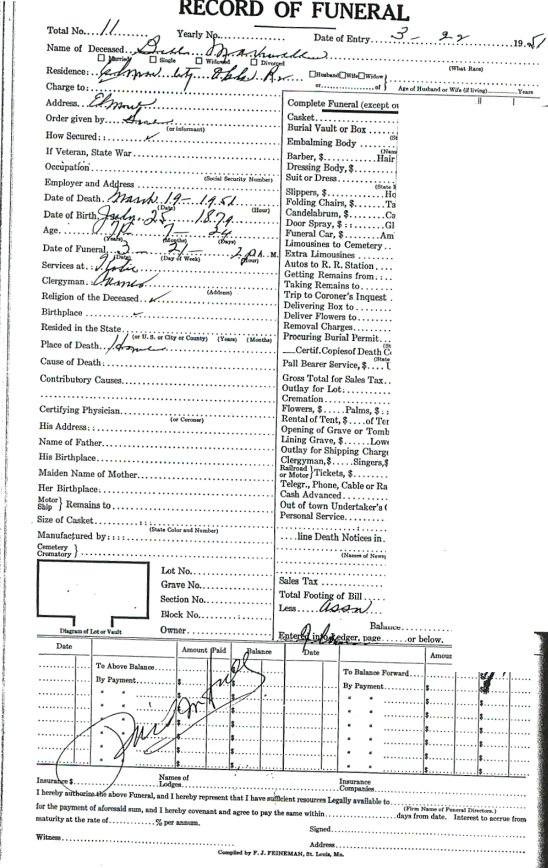 RECORD OF FUNERAL
Total No. 11 Yearly No. Date of Entry 3-22 1951
Name of Deceased
Married Single Widowed Divorced (What Race)
Residence: Husband Wife Widow
or of Age of Husband or Wife (if living) Years
Charge to:
Address
Order given by
(or informant)
How Secured:
If Veteran, State War
Occupation
(Social Security Number)
Employer and Address
Date of Death March 19-1951
(Date) (Hour)
Date of Birth 25 1879
Age 7 24
(Years) (Months) (Days)
Date of Funeral 3 21 2 P M.
(Date) (Day of Week) (Hour)
Services at
Clergyman
(Address)
Religion of the Deceased
Birthplace
Resided in the State
(or U. S. or City or County) (Years) (Months)
Place of Death Home
Cause of Death:
Contributory Causes
Certifying Physician
(or Coroner)
His Address:
Name of Father
His Birthplace
Maiden Name of Mother
Her Birthplace:
Motor Ship } Remains to
Size of Casket
(State Color and Number)
Manufactured by
Cemetery Crematory }
Lot No.
Grave No.
Section No.
Block No.
Owner
Diagram of Lot or Vault
Complete Funeral (except ou
Casket
Burial Vault or Box
(St
Embalming Body
(Name
Barber, $ Hair
Dressing Body, $
Suit or Dress
(State
Slippers, $ Ho
Folding Chairs, $ Ta
Candelabrum, $ Ca
Door Spray, $ Gl
Funeral Car, $ Am
Limousines to Cemetery
Extra Limousines
Autos to R. R. Station
Getting Remains from
Taking Remains to
Trip to Coroner's Inquest
Delivering Box to
Deliver Flowers to
Removal Charges
Procuring Burial Permit
(St
Certif. Copies of Death C
(State
Pall Bearer Service, $
Gross Total for Sales Tax
Outlay for Lot:
Cremation
Flowers, $ Palms, $
Rental of Tent, $ of Ter
Opening of Grave or Tomb
Lining Grave, $ Lowe
Outlay for Shipping Charge
Clergyman, $ Singers, $
Railroad or Motor } Tickets, $
Telegr., Phone, Cable or Ra
Cash Advanced
Out of town Undertaker's C
Personal Service
line Death Notices in
(Names of Newsp
Sales Tax
Total Footing of Bill
Less Assn
Balance
Entered into Ledger, page or below.
Date Amount Paid Balance Date Amoun
To Above Balance $ $ To Balance Forward $
By Payment $ $ By Payment $
" " $ $ " " $
" " $ $ " " $
" " $ $ " " $
" " $ $ " " $
" " $ $ " " $
Insurance $ Names of Lodges Insurance Companies
I hereby authorize the above Funeral, and I hereby represent that I have sufficient resources Legally available to
(Firm Name of Funeral Directors.)
for the payment of aforesaid sum, and I hereby covenant and agree to pay the same within days from date. Interest to accrue from
maturity at the rate of % per annum.
Signed
Witness Address
Compiled by F. J. FEINEMAN, St. Louis, Mo.